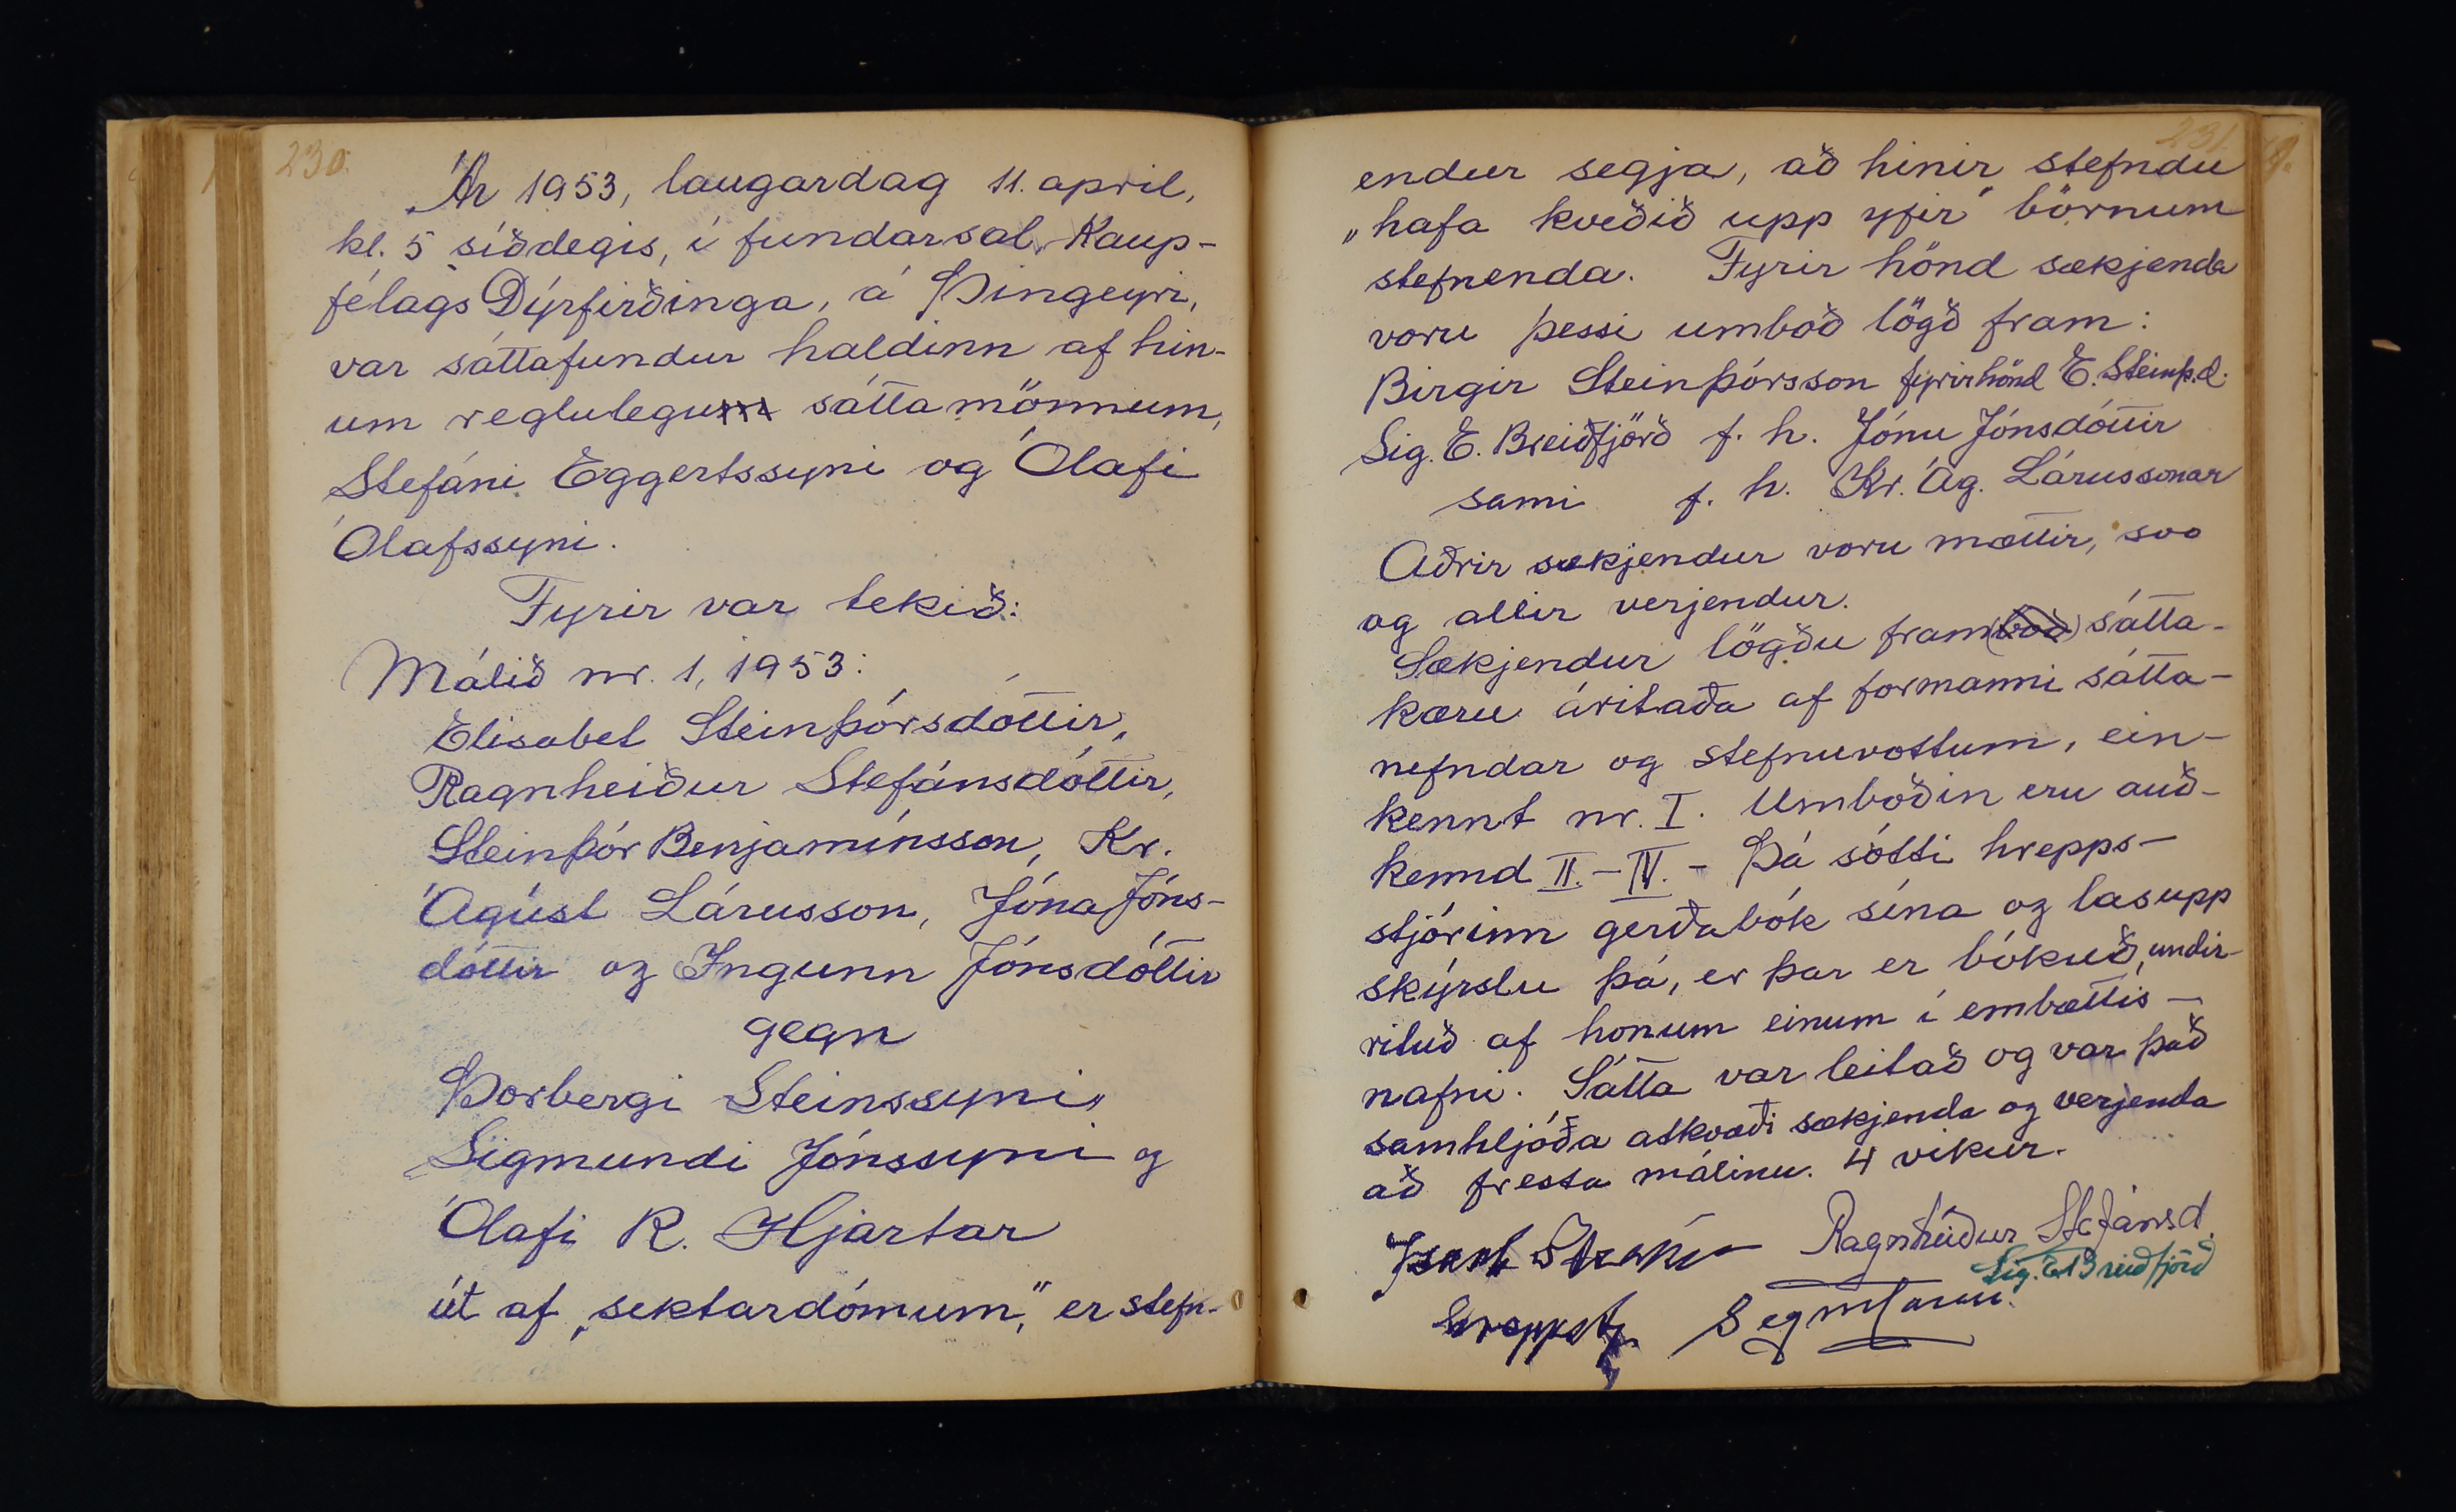 230.
Ár 1953, laugardag 11. apríl,
kl. 5 síðdegis, í fundarsal Kaup-
félags Dýrfirðinga, á Þingeyri,
var sáttafundur haldinn af hin-
um reglulegum sáttamönnum,
Stefáni Eggertssyni og Ólafi
Ólafssyni.
Fyrir var tekið:
Málið nr. 1, 1953:
Elísabet Steinþórsdóttir,
Ragnheiður Stefánsdóttir,
Steinþór Benjamínsson, Kr.
Ágúst Lárusson, Jóna Jóns-
dóttir og Ingunn Jónsdóttir
gegn
Þorbergi Steinssyni,
Sigmundi Jónssyni og
Ólafi R. Hjartar
út af „sektardómum," er stefn-
231.
endur segja, að hinir stefndu
„hafa kveðið upp yfir" börnum
stefnenda. Fyrir hönd sækjenda
voru þessi umboð lögð fram:
Birgir Steinþórsson fyrir hönd E. Steinþ.d.
Sig. E. Breiðfjörð f. h. Jónu Jónsdóttir
sami f. h. Kr. Ág. Lárussonar
Aðrir sækjendur voru mættir, svo
og allir verjendur.
Sækjendur lögðu fram (boð) sátta-
kæru áritaða af formanni sátta-
nefndar og stefnuvottum, ein-
kennt nr. I. Umboðin eru auð-
kennd II.-IV. - Þá sótti hrepps-
stjórinn gerðabók sína og las upp
skýrslu þá, er þar er bókuð, undir-
rituð af honum einum í embættis-
nafni. Sátta var leitað og var það
samhljóða atkvæði sækjenda og verjenda
að fresta málinu. 4 vikur.
Ragnheiður Stefánsd.
Sig. E. Breiðfjörð